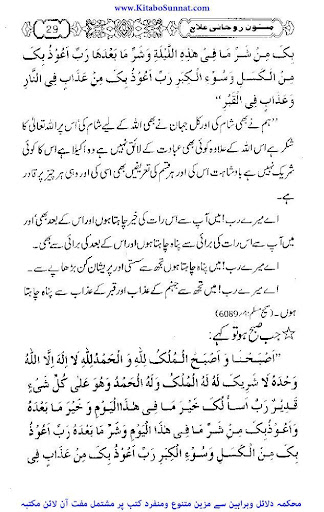 www.KitaboSunnat.com
مسنون روحانی علاج
29
بِکَ مِنْ شَرِّ مَا فِیْ هٰذِهِ اللَّیْلَةِ وَشَرِّ مَا بَعْدَهَا رَبِّ اَعُوْذُ بِکَ
مِنَ الْکَسَلِ وَسُوْءِ الْکِبَرِ رَبِّ اَعُوْذُ بِکَ مِنْ عَذَابٍ فِی النَّارِ
وَعَذَابٍ فِی الْقَبْرِ"
"ہم نے بھی شام کی اور کل جہان نے بھی اللہ کے لیے شام کی اس پر اللہ تعالیٰ کا
شکر ہے اس اللہ کے علاوہ کوئی بھی عبادت کے لائق نہیں ہے وہ اکیلا ہے اس کا کوئی
شریک نہیں ہے بادشاہت اس کی اور ہر قسم کی تعریفیں بھی اسی کی اور وہی ہر چیز پر قادر
ہے۔
اے میرے رب! میں آپ سے اس رات کی خیر چاہتا ہوں اور اس کے بعد بھی اور
میں آپ سے اس رات کی برائی سے پناہ چاہتا ہوں اور اس کے بعد کی برائی سے بھی۔
اے میرے رب! میں پناہ چاہتا ہوں تجھ سے سستی اور پریشان کن بڑھاپے سے۔
اے میرے رب! میں تجھ سے جہنم کے عذاب اور قبر کے عذاب سے پناہ چاہتا
ہوں۔ (صحیح مسلم: 6089)
☆ جب صبح ہو تو کہے:
"اَصْبَحْنَا وَ اَصْبَحَ الْمُلْکُ لِلّٰهِ وَ الْحَمْدُ لِلّٰهِ لَا اِلٰهَ اِلَّا اللّٰهُ
وَحْدَهٗ لَا شَرِیْکَ لَهٗ لَهُ الْمُلْکُ وَ لَهُ الْحَمْدُ وَهُوَ عَلٰی کُلِّ شَیْءٍ
قَدِیْرٌ رَبِّ اَسْأَلُکَ خَیْرَ مَا فِیْ هٰذَا الْیَوْمِ وَ خَیْرَ مَا بَعْدَهٗ
وَاَعُوْذُ بِکَ مِنْ شَرِّ مَا فِیْ هٰذَا الْیَوْمِ وَشَرِّ مَا بَعْدَهٗ رَبِّ اَعُوْذُ
بِکَ مِنَ الْکَسَلِ وَسُوْءِ الْکِبَرِ رَبِّ اَعُوْذُ بِکَ مِنْ عَذَابٍ فِی
محکمہ دلائل وبراہین سے مزین متنوع ومنفرد کتب پر مشتمل مفت آن لائن مکتبہ